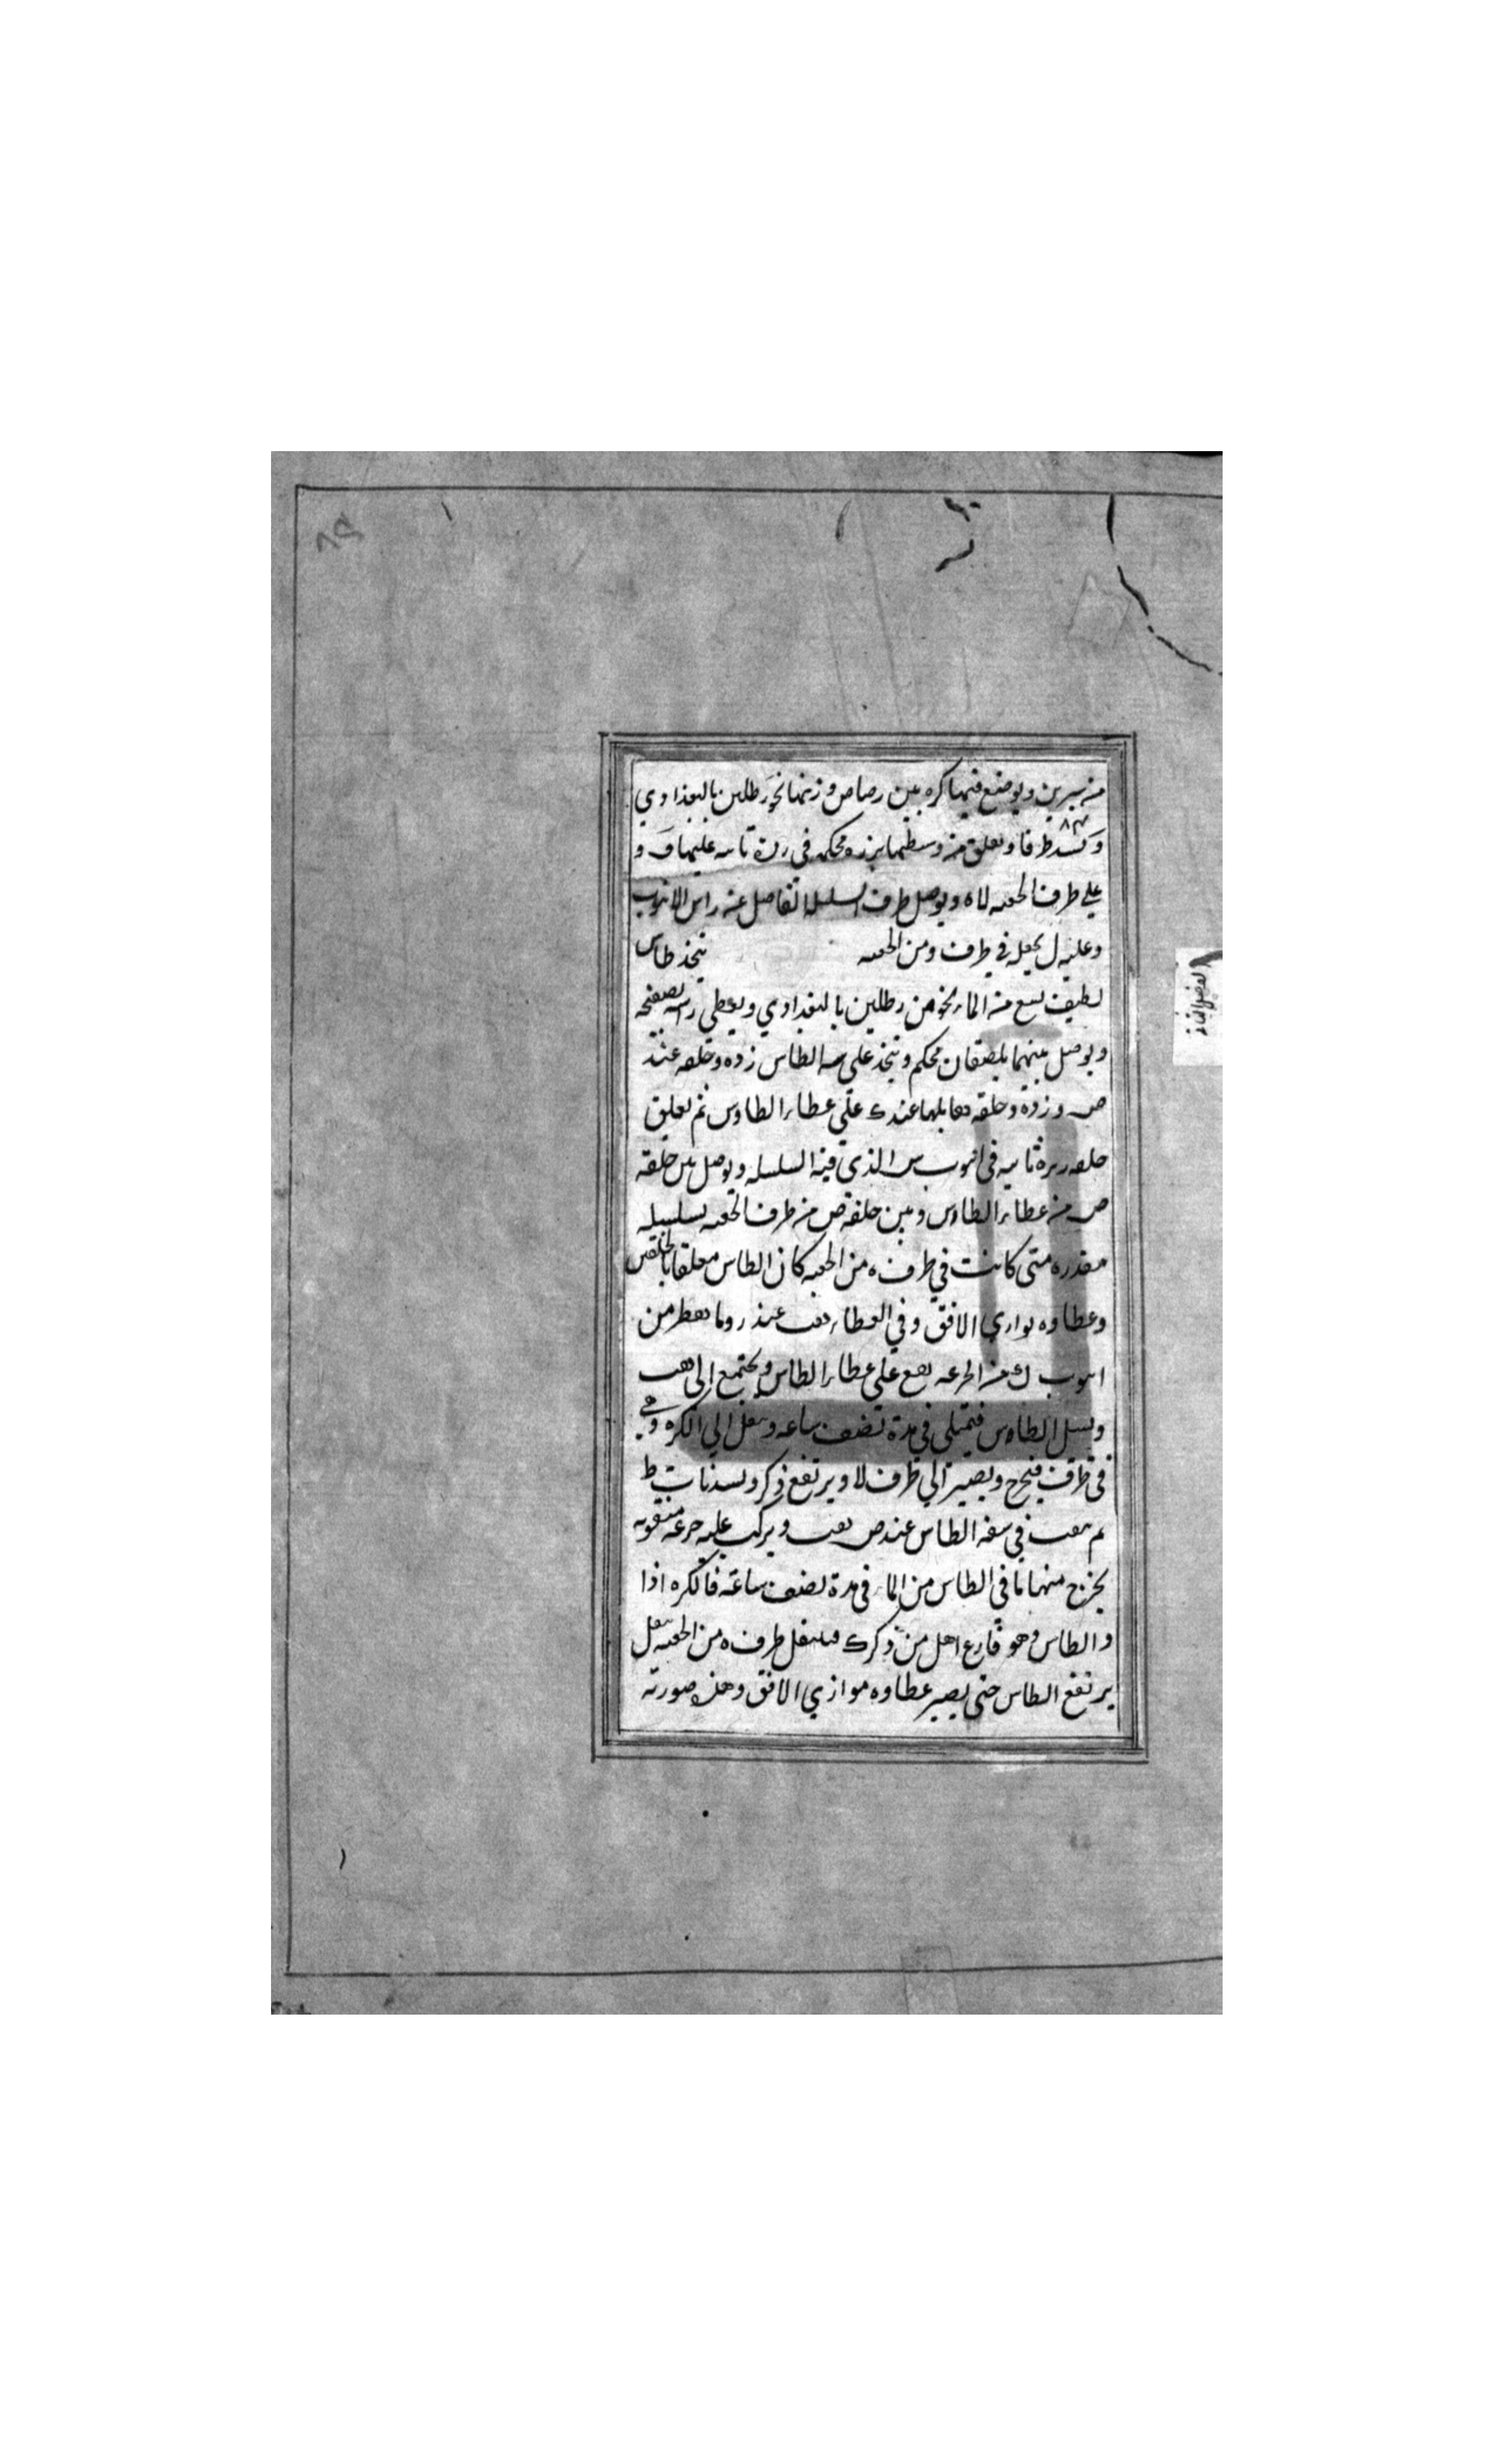 ٨٩
من سرين ويوضع فيها كره من رصاص وزنها نحو رطلين بالبغدادي
ويسد طرفا ويعلق من وسطها برزه محكمه في رزة ثابته عليها ق و
على طرف الجعبه لا ه ويوصل طرف السلسله الفاصل عن راس الانبوب
وعليه ل يجعله في طرف و من الجعبه يتخذ طاس
لطيف يسع من الماء نحو من رطلين بالبغدادي ويغطي راسه بصفيحه
ويوصل بينهما بلصقان محكم ويتخذ على الطاس زده وحلقه عند
ص و زده وحلقه تقابلها عند ك على غطاء الطاوس ثم تعليق
حلقه رزة ثابته في انبوب س الذي فيه السلسله ويوصل بين حلقة
ص من غطاء الطاس وبين حلقة ص من طرف الجعبه بسلسله
مقدره متى كانت في طرف ه من الجعبه كان الطاس معلقا بالحلقتين
وغطاوه يوازي الافق وفي الغطاء ثقب عند ر وما يقطر من
انبوب ك من الجزعه يقع على غطاء الطاس ويجتمع الى ثقب
ويسيل الطاس فيمتلى في مدة نصف ساعه ويثقل الى الكره وهي
في طرف فيجح ويصير الى طرف لا ويرتفع ذكر ويسد باب ط
ثم يثقب في سفه الطاس عند ص ثقب ويركب عليه جزعه مثقوبه
يخرج منها ما في الطاس من الماء في مدة نصف ساعة فالكره اذا
والطاس وهو فارغ اهل من ذكر ك فيثقل طرف ه من الجعبه ثقل
يرتفع الطاس حتى يصير غطاوه موازي الافق وهذه صورته